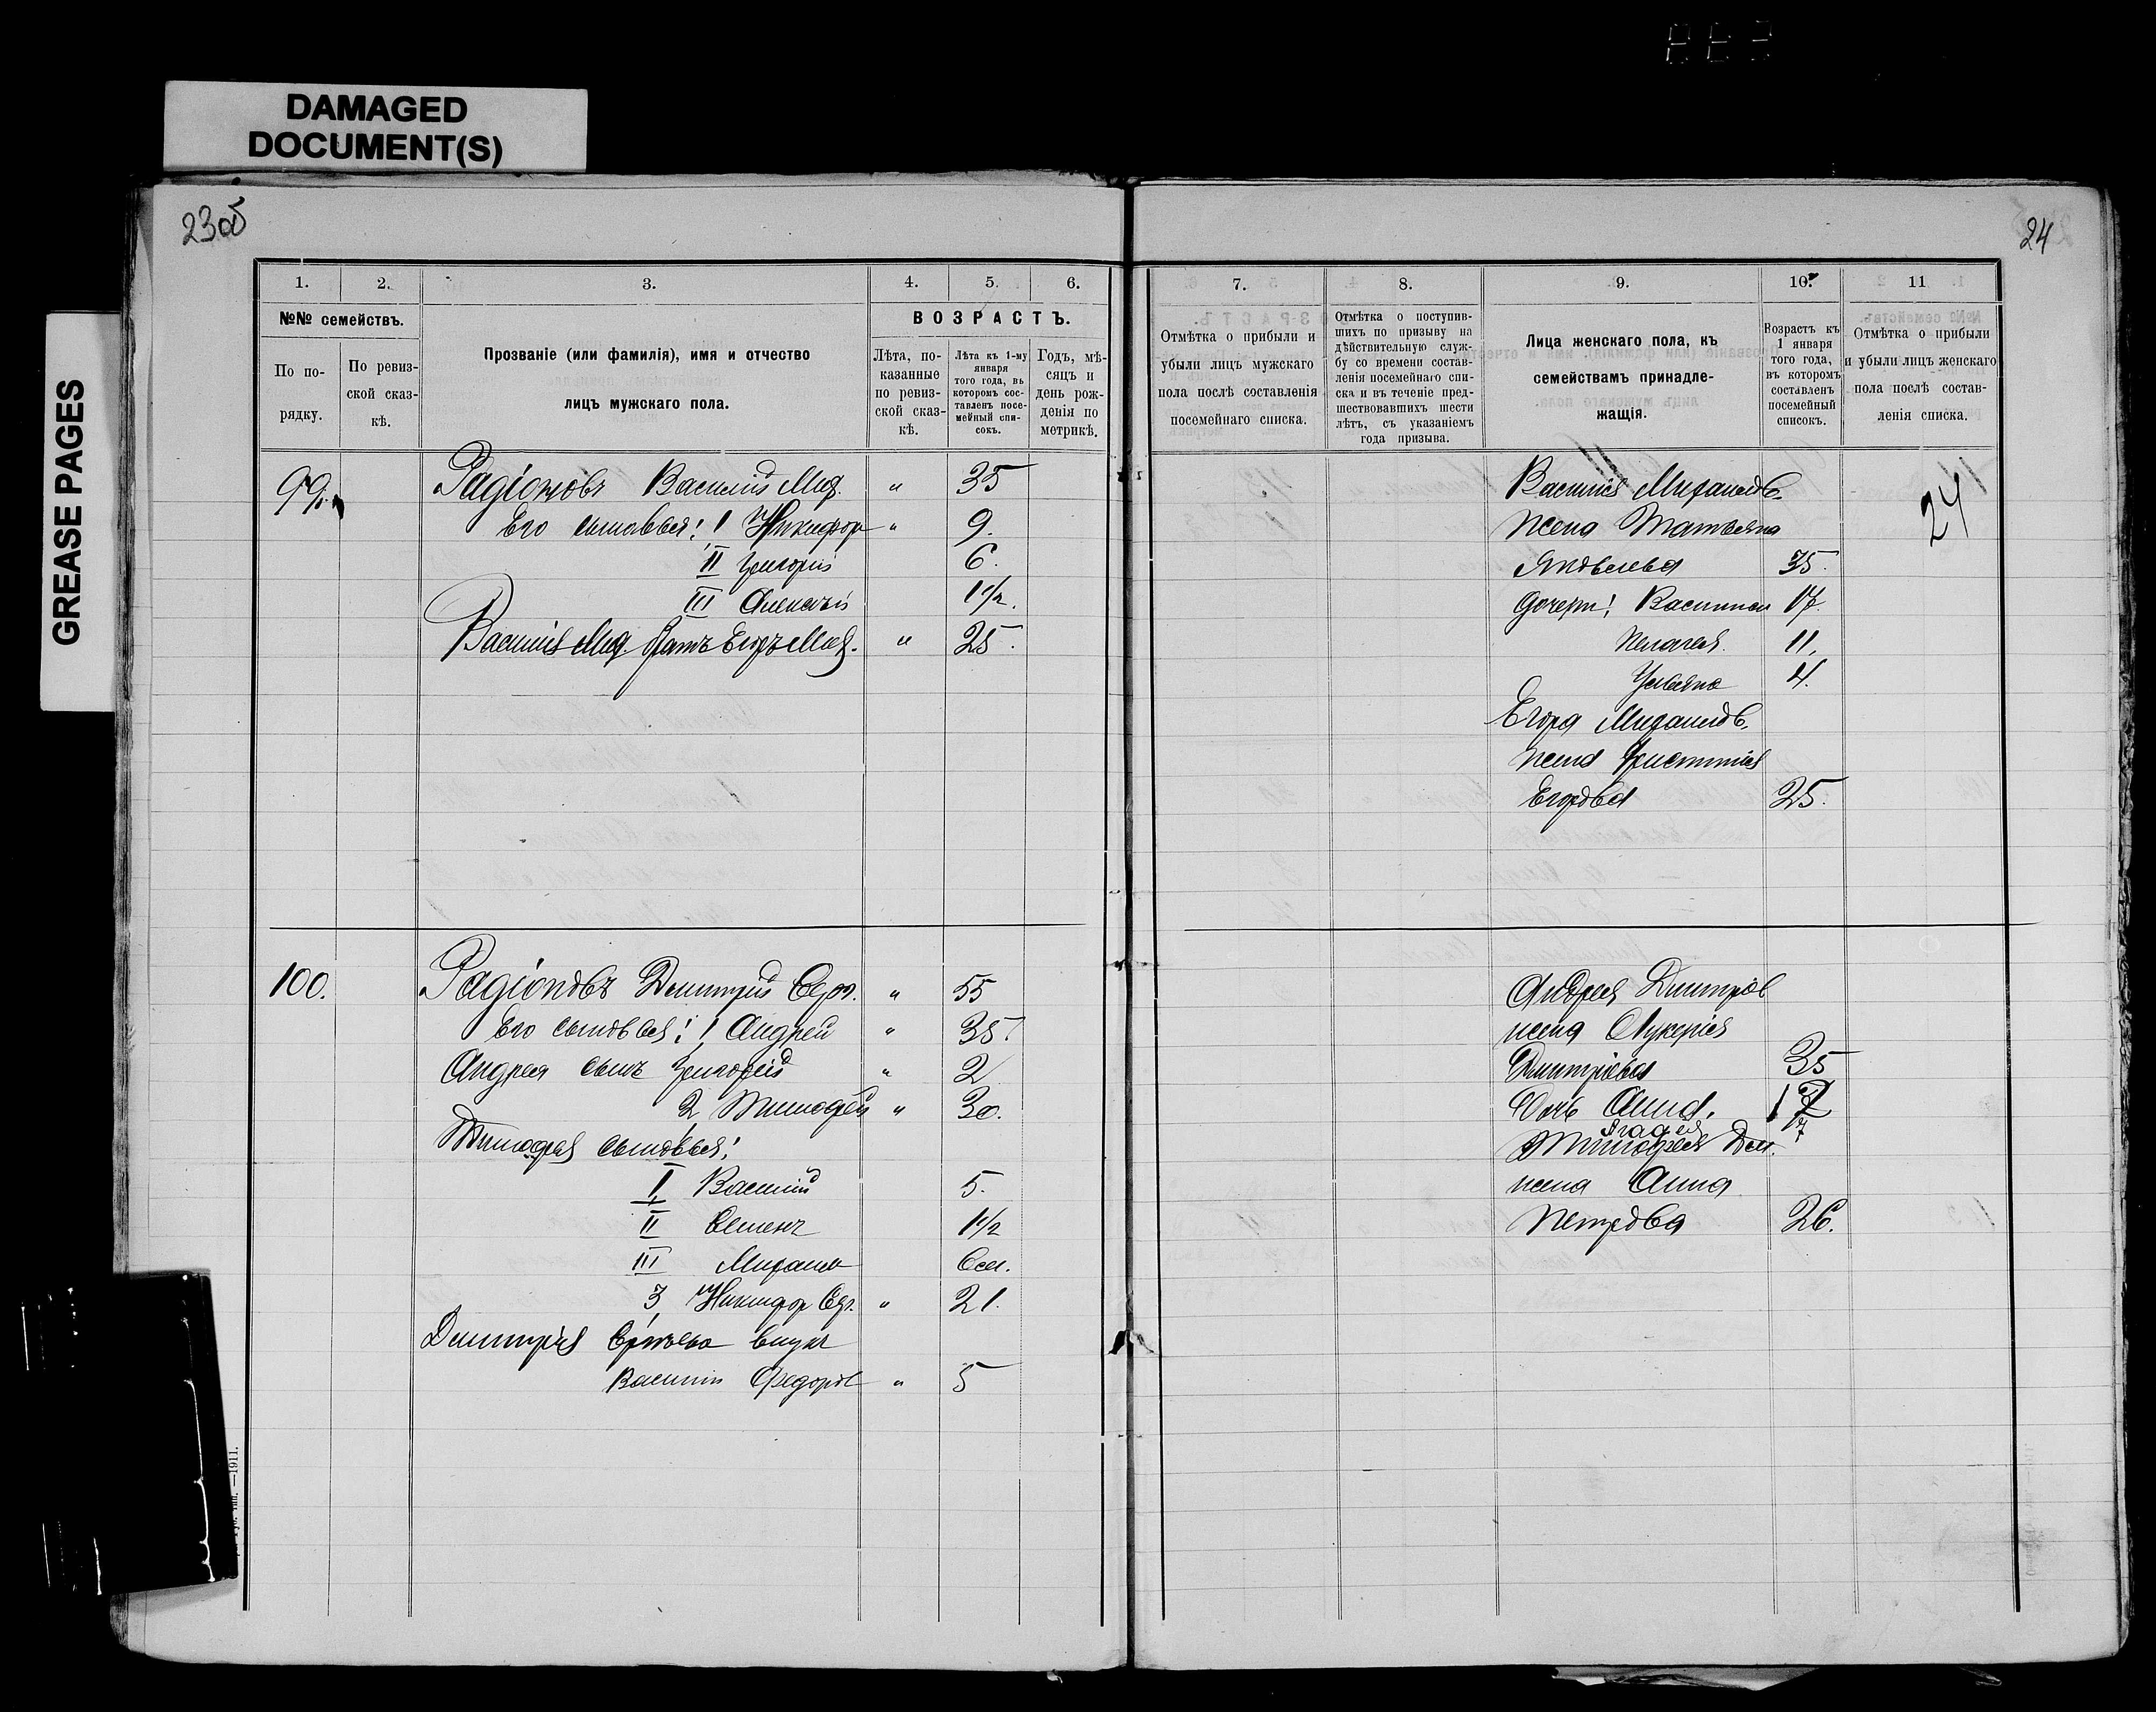 DAMAGED
DOCUMENT(S)
GREASE PAGES
23об
1. 2. 3. 4. 5. 6.
№№ семействъ.
По по-
рядку.
По ревиз-
ской сказ-
кѣ.
Прозваніе (или фамилія), имя и отчество
лицъ мужскаго пола.
ВОЗРАСТЪ.
Лѣта, по-
казанные
по ревиз-
ской сказ-
кѣ.
Лѣта къ 1-му
января
того года, въ
которомъ сос-
тавленъ посе-
мейный спи-
сокъ.
Годъ, мѣ-
сяцъ и
день рож-
денія по
метрикѣ.
99. Радіоновъ Василій Мих. " 35
Его сыновья: 1 Никифор " 9.
II Григорій 6.
III Алексѣй 1 1/2.
Василія Мих. братъ Егоръ Мих. " 25.
100. Радіоновъ Дмитрій Серг. " 55
Его сыновья: 1 Андрей " 35.
Андрея сынъ Григорій " 2
2 Тимофей " 30.
Тимофея сыновья:
I, Василій 5.
II Семенъ 1 1/2
III Михаил
3, Никифор " 21.
Дмитрія внукъ
Василій Федоров " 5
—1911.
24
7. 8. 9. 10. 11
Отмѣтка о прибыли и
убыли лицъ мужскаго
пола послѣ составленія
посемейнаго списка.
Отмѣтка о поступив-
шихъ по призыву на
дѣйствительную служ-
бу со времени состав-
ленія посемейнаго спи-
ска и въ теченіе пред-
шествовавшихъ шести
лѣтъ, съ указаніемъ
года призыва.
Лица женскаго пола, къ
семействамъ принадле-
жащія.
Возрастъ къ
1 января
того года,
въ которомъ
составленъ
посемейный
списокъ.
Отмѣтка о прибыли
и убыли лицъ женскаго
пола послѣ состав-
ленія списка.
Василія Михайлов.
жена Татьяна
Яковлева 35.
дочери: Василиса 17.
Пелагея 11,
Ульяна 4.
Егора Михайлов.
жена Христинія
Егорова 25.
24
Андрея Дмитріев
жена Лукерія
Дмитріева 35
Дочь Анна.
Тимофея Дм.
жена Анна
Петрова 26.